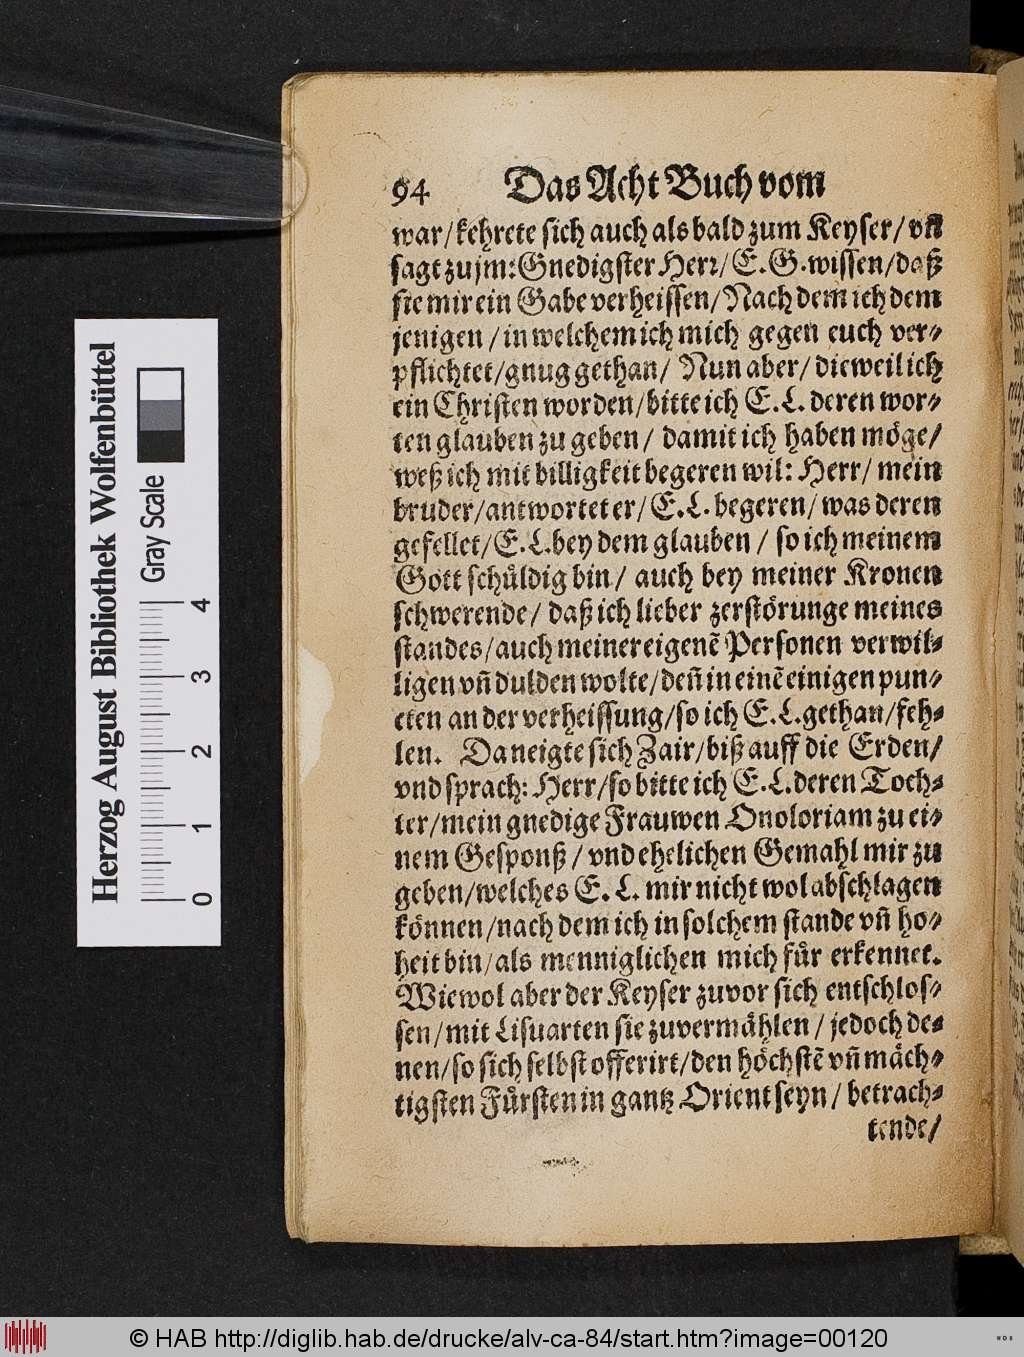 94 Das Acht Buch vom
war/kehrete sich auch als bald zum Keyser/vñ
sagt zu jm: Gnedigster Herr/E.G. wissen/daß
sie mir ein Gabe verheissen/Nach dem ich dem
jenigen/in welchem ich mich gegen euch ver⸗
pflichtet/gnug gethan/ Nun aber/dieweil ich
ein Christen worden/bitte ich E.L. deren wor⸗
ten glauben zu geben/ damit ich haben möge/
weß ich mit billigkeit begeren wil: Herr/ mein
bruder/antwortet er/E.L. begeren/was deren
gefellet/E.L. bey dem glauben/ so ich meinem
Gott schůldig bin/ auch bey meiner Kronen
schwerende/ daß ich lieber zerstörunge meines
standes/auch meiner eigenẽ Personen verwil⸗
ligen vñ dulden wolte/deñ in einẽ einigen pun⸗
cten an der verheissung/so ich E.L. gethan/feh⸗
len. Da neigte sich Zair/biß auff die Erden/
vnd sprach: Herr/so bitte ich E.L. deren Toch⸗
ter/mein gnedige Frauwen Onoloriam zu ei⸗
nem Gesponß/ vnd ehelichen Gemahl mir zu
geben/welches E.L. mir nicht wol abschlagen
können/nach dem ich in solchem stande vñ ho⸗
heit bin/als menniglichen mich fůr erkennet.
Wiewol aber der Keyser zuvor sich entschlos⸗
sen/mit Lisuarten sie zuvermählen/ jedoch de⸗
nen/so sich selbst offerirt/den höchstẽ vñ mäch⸗
tigsten Fůrsten in gantz Orient seyn/ betrach⸗
tende/
Herzog August Bibliothek Wolfenbüttel
Gray Scale
0 1 2 3 4
© HAB http://diglib.hab.de/drucke/alv-ca-84/start.htm?image=00120